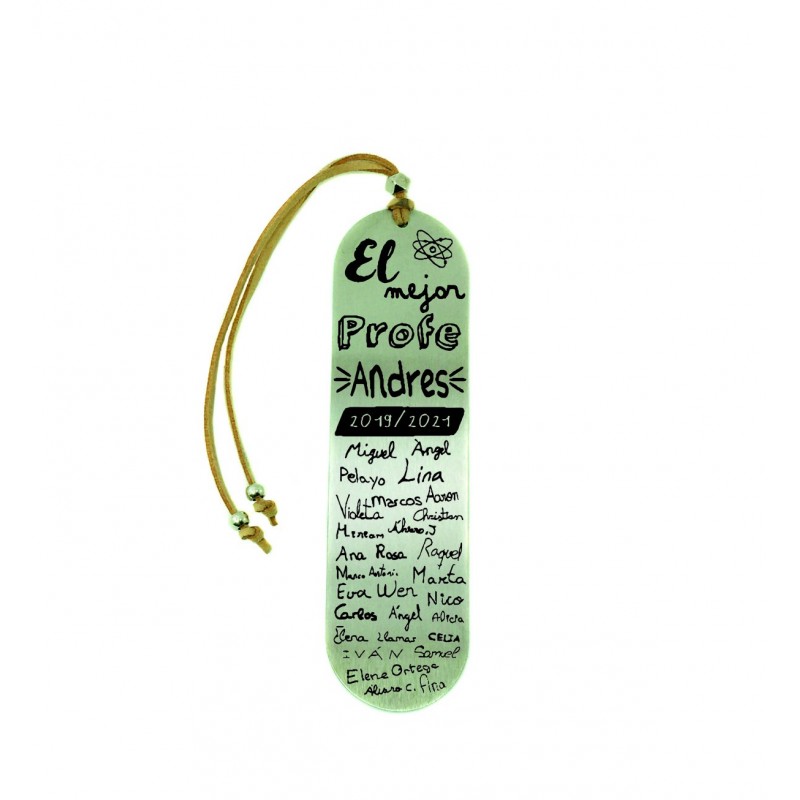 El
mejor
Profe
Andres
2019/2021
Miguel Àngel
Pelayo Lina
Marcos Aaron
Violeta Christian
Miriam Álvaro.J
Ana Rosa Raquel
Marco Antoni. Marta
Eva Wen Nico
Carlos Ángel Alicia
Elena Llamas CELIA
IVÁN Samuel
Elene Ortega
Alvaro C. Fina